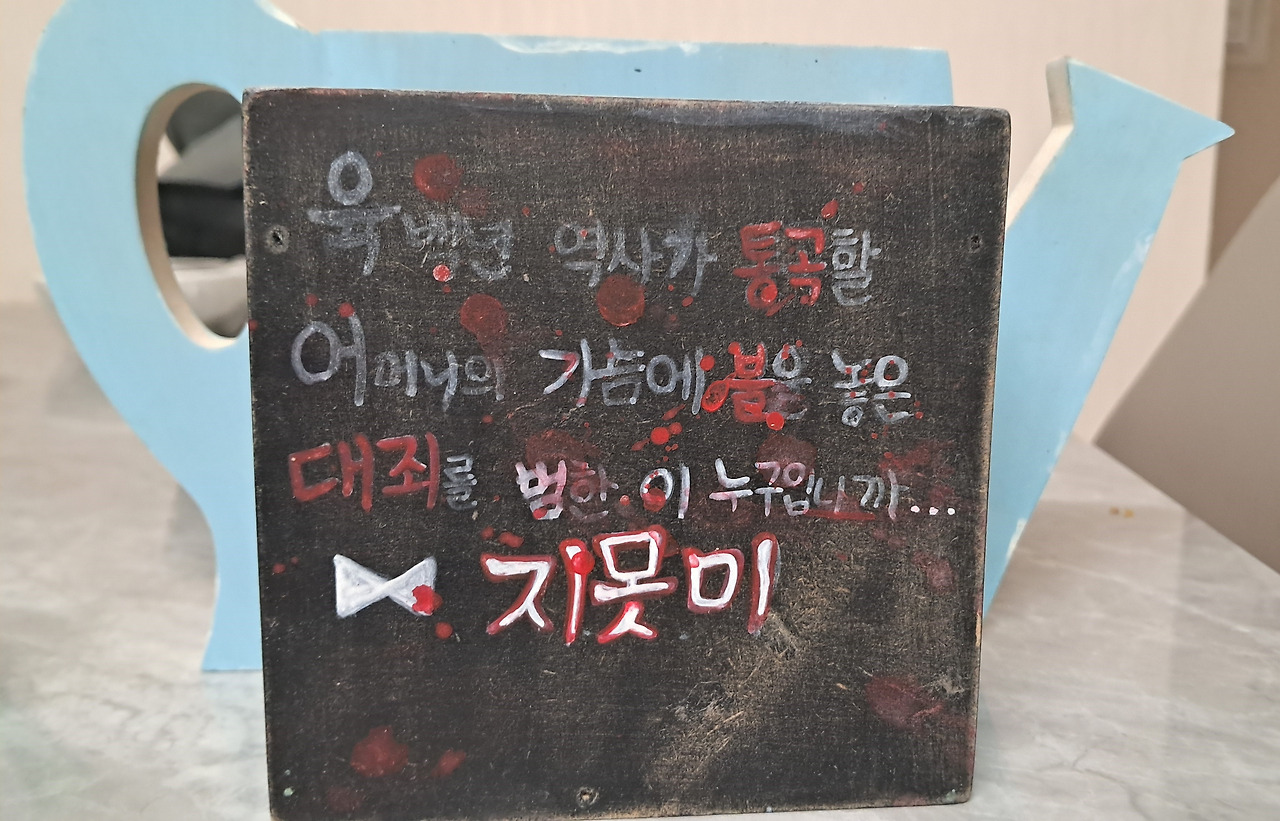 육백년 역사가 통곡할
어미니의 가슴에 불을 놓은
대죄를 범한 이 누구입니까...
지못미